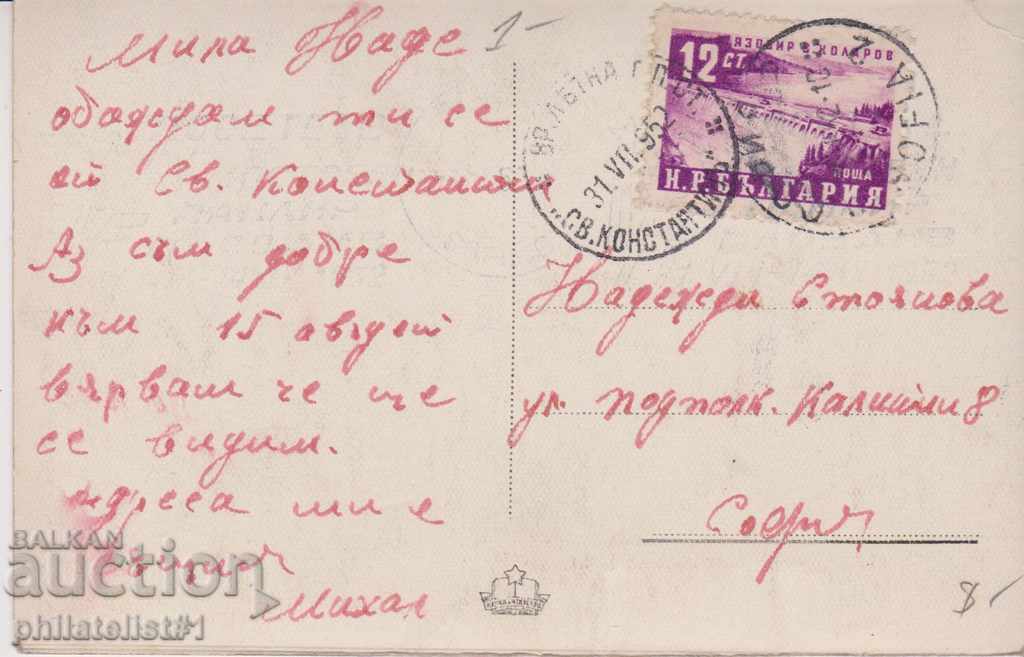 Мила Наде 1-
обаждам ти се
от Св. Константин
Аз съм добре
към 15 август
вярвам че ще
се видим.
адреса ми е
Михал
ЯЗОВИР В. КОЛАРОВ
12 СТ.
ПОЩА
Н.Р. БЪЛГАРИЯ
ВР. ЛѢТНА Г.П.СТ.
31.VII.952
„СВ. КОНСТАНТИНЪ"
SOFIA 2
СОФИЯ
Надежди Стоянова
ул. подполк. Калитин 8
София
8-
BALKAN
auction
philatelist#1